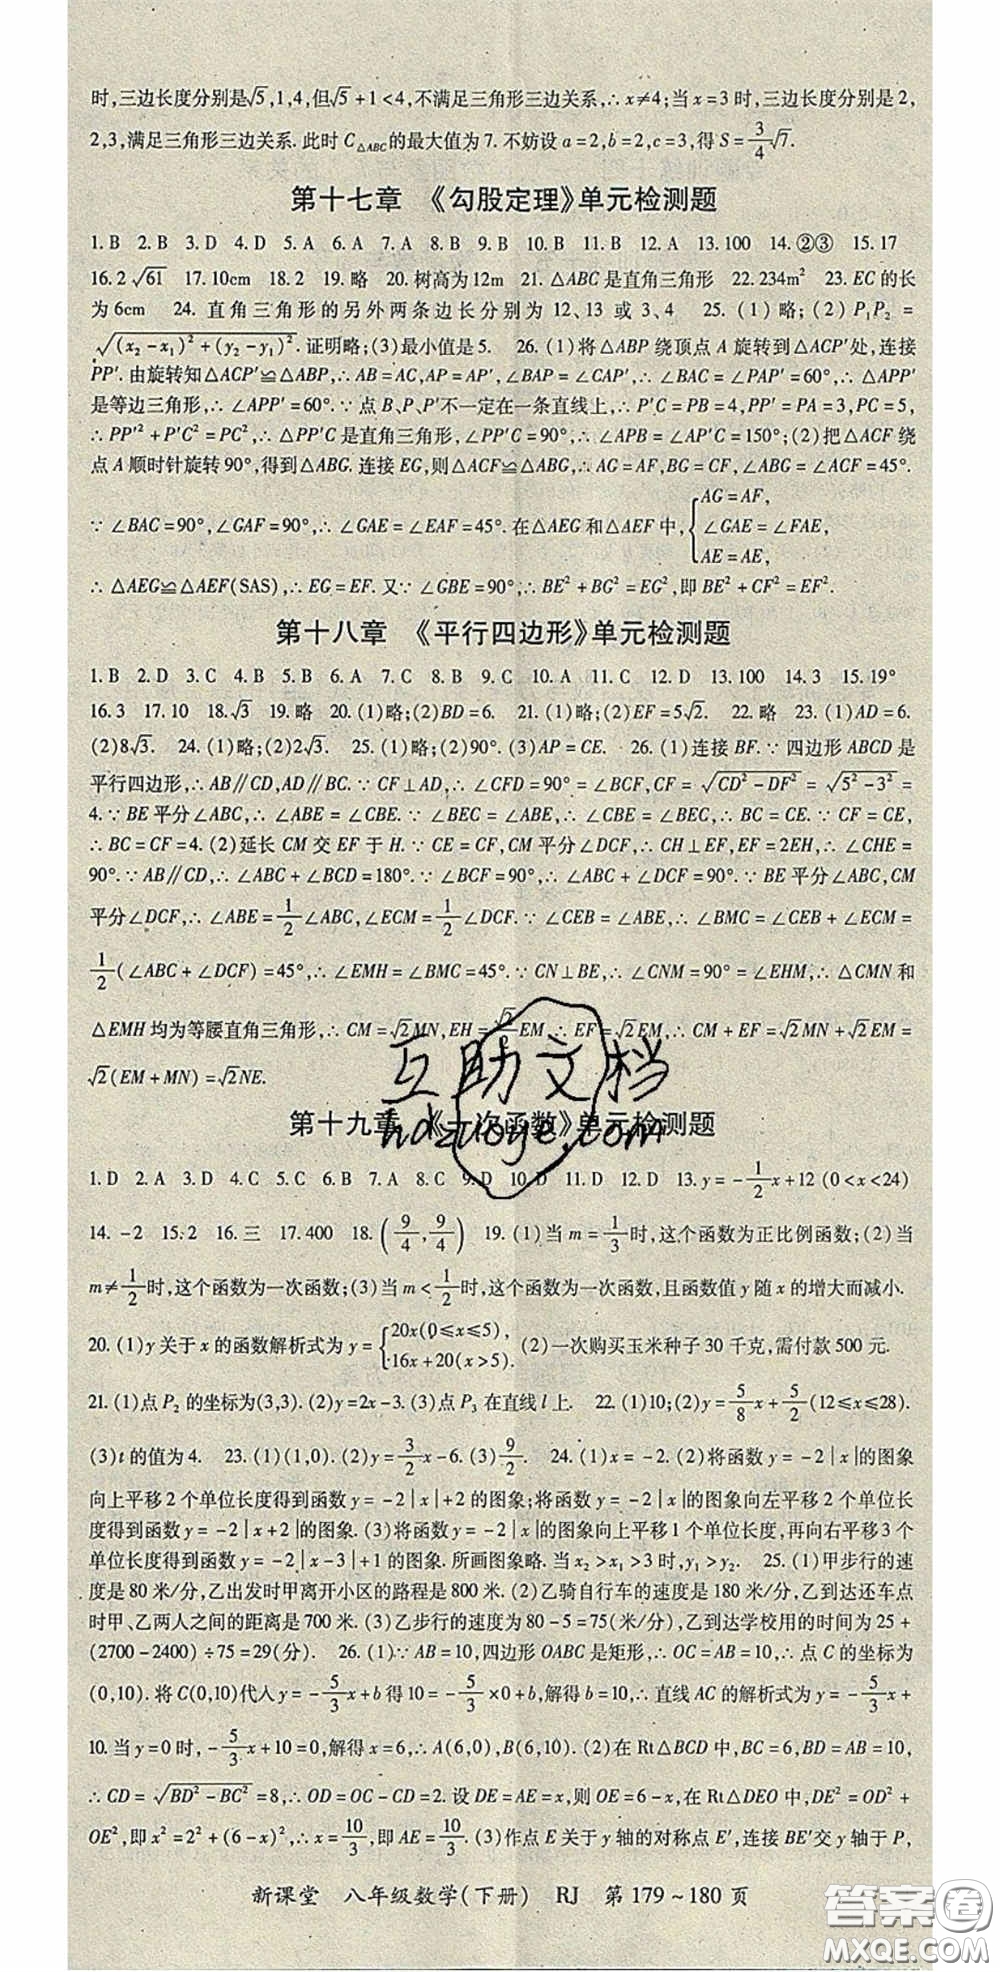 时,三边长度分别是√5,1,4,但√5+1<4,不满足三角形三边关系,∴x≠4;当x=3时,三边长度分别是2,
2,3,满足三角形三边关系.此时C△ABC的最大值为7.不妨设a=2,b=2,c=3,得S=3/4√7.
第十七章 《勾股定理》单元检测题
1.B 2.B 3.D 4.D 5.A 6.A 7.A 8.B 9.B 10.B 11.B 12.A 13.100 14.②③ 15.17
16.2√61 17.10cm 18.2 19.略 20.树高为12m 21.△ABC是直角三角形 22.234m² 23.EC的长
为6cm 24.直角三角形的另外两条边长分别为12、13或3、4 25.(1)略;(2)P₁P₂=
√(x₂-x₁)²+(y₂-y₁)².证明略;(3)最小值是5. 26.(1)将△ABP绕顶点A旋转到△ACP′处,连接
PP′.由旋转知△ACP′≌△ABP,∴AB=AC,AP=AP′,∠BAP=∠CAP′,∴∠BAC=∠PAP′=60°,∴△APP′
是等边三角形,∴∠APP′=60°.∵点B、P、P′不一定在一条直线上,∴P′C=PB=4,PP′=PA=3,PC=5,
∴PP′²+P′C²=PC²,∴△PP′C是直角三角形,∠PP′C=90°,∴∠APB=∠AP′C=150°;(2)把△ACF绕
点A顺时针旋转90°,得到△ABG.连接EG,则△ACF≌△ABG,∴AG=AF,BG=CF,∠ABG=∠ACF=45°.
∵∠BAC=90°,∠GAF=90°,∴∠GAE=∠EAF=45°.在△AEG和△AEF中,{AG=AF,
∠GAE=∠FAE,
AE=AE,
∴△AEG≌△AEF(SAS),∴EG=EF.又∵∠GBE=90°,∴BE²+BG²=EG²,即BE²+CF²=EF².
第十八章 《平行四边形》单元检测题
1.B 2.D 3.C 4.B 5.B 6.A 7.C 8.B 9.C 10.A 11.C 12.D 13.100 14.3 15.19°
16.3 17.10 18.√3 19.略 20.(1)略;(2)BD=6. 21.(1)略;(2)EF=5√2. 22.略 23.(1)AD=6.
(2)8√3. 24.(1)略;(2)2√3. 25.(1)略;(2)90°.(3)AP=CE. 26.(1)连接BF.∵四边形ABCD是
平行四边形,∴AB∥CD,AD∥BC.∵CF⊥AD,∴∠CFD=90°=∠BCF,CF=√CD²-DF²=√5²-3²=
4.∵BE平分∠ABC,∴∠ABE=∠CBE.∵∠BEC=∠ABE,∴∠CBE=∠BEC,∴BC=CE.∵CF=CE,
∴BC=CF=4.(2)延长CM交EF于H.∵CE=CF,CM平分∠DCF,∴CH⊥EF,EF=2EH,∴∠CHE=
90°.∵AB∥CD,∴∠ABC+∠BCD=180°.∵∠BCF=90°,∴∠ABC+∠DCF=90°.∵BE平分∠ABC,CM
平分∠DCF,∴∠ABE=1/2∠ABC,∠ECM=1/2∠DCF.∵∠CEB=∠ABE,∴∠BMC=∠CEB+∠ECM=
1/2(∠ABC+∠DCF)=45°,∴∠EMH=∠BMC=45°.∵CN⊥BE,∴∠CNM=90°=∠EHM,∴△CMN和
△EMH均为等腰直角三角形,∴CM=√2MN,EH=√2/2EM,∴EF=√2EM,∴CM+EF=√2MN+√2EM=
√2(EM+MN)=√2NE.
第十九章 《一次函数》单元检测题
1.D 2.A 3.D 4.C 5.C 6.B 7.A 8.C 9.D 10.D 11.D 12.D 13.y=-1/2x+12(0<x<24)
14.-2 15.2 16.三 17.400 18.(9/4,9/4) 19.(1)当m=1/3时,这个函数为正比例函数;(2)当
m≠1/2时,这个函数为一次函数;(3)当m<1/2时,这个函数为一次函数,且函数值y随x的增大而减小.
20.(1)y关于x的函数解析式为y={20x(0≤x≤5),
16x+20(x>5). (2)一次购买玉米种子30千克,需付款500元.
21.(1)点P₂的坐标为(3,3).(2)y=2x-3.(3)点P₃在直线l上. 22.(1)10;(2)y=5/8x+5/2(12≤x≤28).
(3)t的值为4. 23.(1)(1,0).(2)y=3/2x-6.(3)9/2. 24.(1)x=-2.(2)将函数y=-2|x|的图象
向上平移2个单位长度得到函数y=-2|x|+2的图象;将函数y=-2|x|的图象向左平移2个单位长
度得到函数y=-2|x+2|的图象.(3)将函数y=-2|x|的图象向上平移1个单位长度,再向右平移3个
单位长度得到函数y=-2|x-3|+1的图象.所画图象略.当x₂>x₁>3时,y₁>y₂. 25.(1)甲步行的速
度是80米/分,乙出发时甲离开小区的路程是800米.(2)乙骑自行车的速度是180米/分,乙到达还车点
时甲、乙两人之间的距离是700米.(3)乙步行的速度为80-5=75(米/分),乙到达学校用的时间为25+
(2700-2400)÷75=29(分). 26.(1)∵AB=10,四边形OABC是矩形,∴OC=AB=10,∴点C的坐标为
(0,10).将C(0,10)代入y=-5/3x+b得10=-5/3×0+b,解得b=10,∴直线AC的解析式为y=-5/3x+
10.当y=0时,-5/3x+10=0,解得x=6,∴A(6,0),B(6,10).(2)在Rt△BCD中,BC=6,BD=AB=10,
∴CD=√BD²-BC²=8,∴OD=OC-CD=2.设DE=AE=x,则OE=6-x,在Rt△DEO中,DE²=OD²+
OE²,即x²=2²+(6-x)²,∴x=10/3,即AE=10/3.(3)作点E关于y轴的对称点E′,连接BE′交y轴于P,
新课堂 八年级数学(下册) RJ 第179~180页
互助文档
hdzuoye.com
答案圈
MXQE.COM